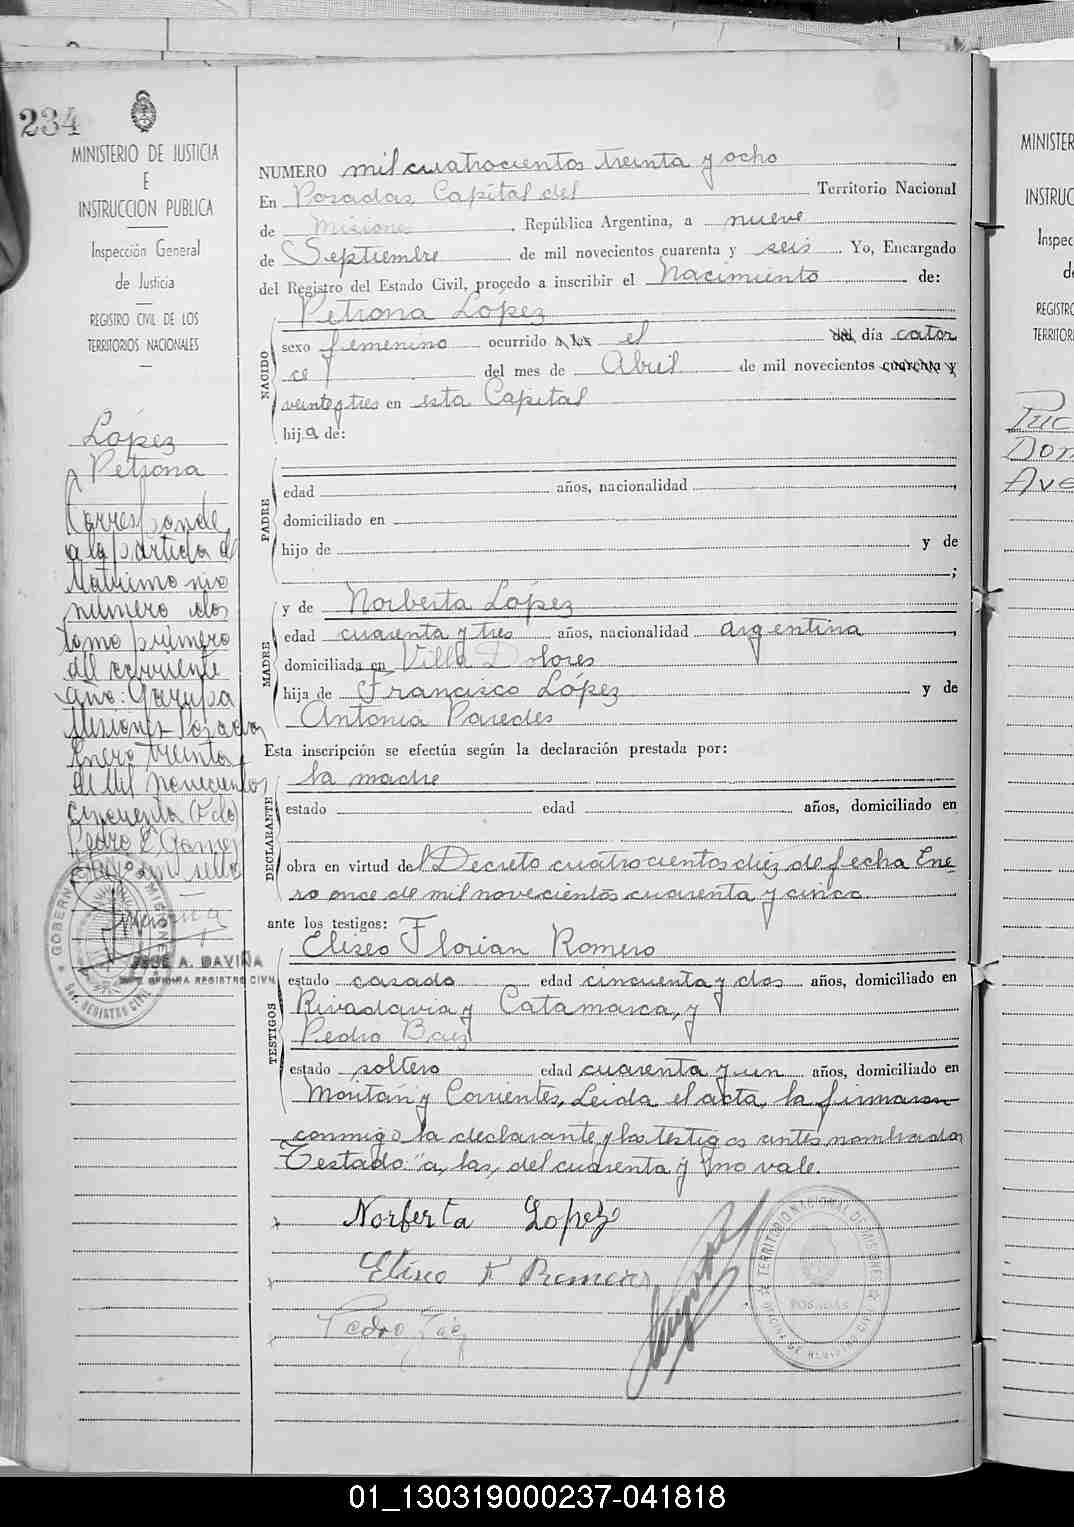 234
MINISTERIO DE JUSTICIA
E
INSTRUCCION PUBLICA
Inspección General
de Justicia
REGISTRO CIVIL DE LOS
TERRITORIOS NACIONALES
López
Petrona
Corresponde
a la partida de
Matrimonio
numero dos
tomo primero
del corriente
año: Garupa
Misiones Posadas
Enero treinta
de Mil novecientos
cincuenta (Fdo)
Pedro E. Gomez
JOSÉ A. DAVIÑA
JEFE OFICINA REGISTRO CIVIL
NUMERO mil cuatrocientos treinta y ocho
En Posadas Capital del Territorio Nacional
de Misiones, República Argentina, a nueve
de Septiembre de mil novecientos cuarenta y seis. Yo, Encargado
del Registro del Estado Civil, procedo a inscribir el Nacimiento de:
Petrona Lopez
NACIDO
sexo femenino ocurrido a las el del día cator
ce del mes de Abril de mil novecientos cuarenta y
veinte y tres en esta Capital
hija de:
PADRE
edad años, nacionalidad ,
domiciliado en
hijo de y de
;
MADRE
y de Norberta López
edad cuarenta y tres años, nacionalidad argentina,
domiciliada en Villa Dolores
hija de Francisco López y de
Antonia Paredes
Esta inscripción se efectúa según la declaración prestada por:
DECLARANTE
la madre
estado edad años, domiciliado en
obra en virtud del Decreto cuatrocientos diez de fecha Ene
ro once de mil novecientos cuarenta y cinco.
ante los testigos:
TESTIGOS
Eliseo Florian Romero
estado casado edad cincuenta y dos años, domiciliado en
Rivadavia y Catamarca, y
Pedro Baez
estado soltero edad cuarenta y un años, domiciliado en
Moritán y Corrientes, Leida el acta, la firmaron
conmigo la declarante y los testigos antes nombrados
Testado: "a, las, del cuarenta y" no vale.
Norberta Lopez
Eliseo F Romero
Pedro Baez
TERRITORIO NACIONAL DE MISIONES
POSADAS
OFICINA DE REGISTRO CIVIL
MINISTER
INSTRUC
Inspec
de
REGISTRO
TERRITORI
Puc
Dom
Ave
01_130319000237-041818